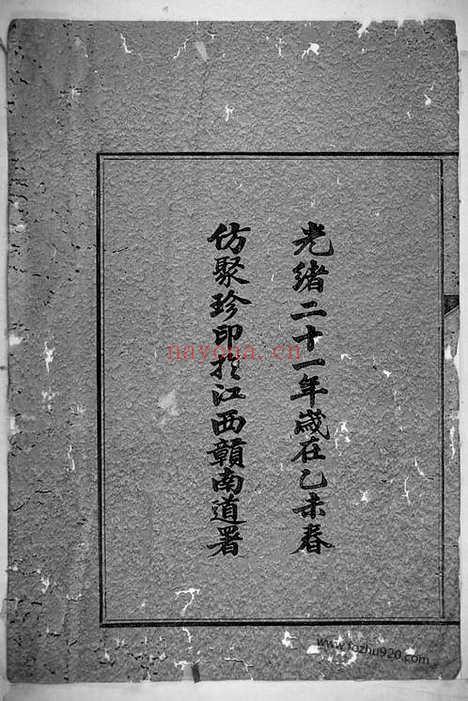 光緒二十一年歲在乙未春
仿聚珍印於江西贛南道署
nayona.cn
www.fozhu920.com